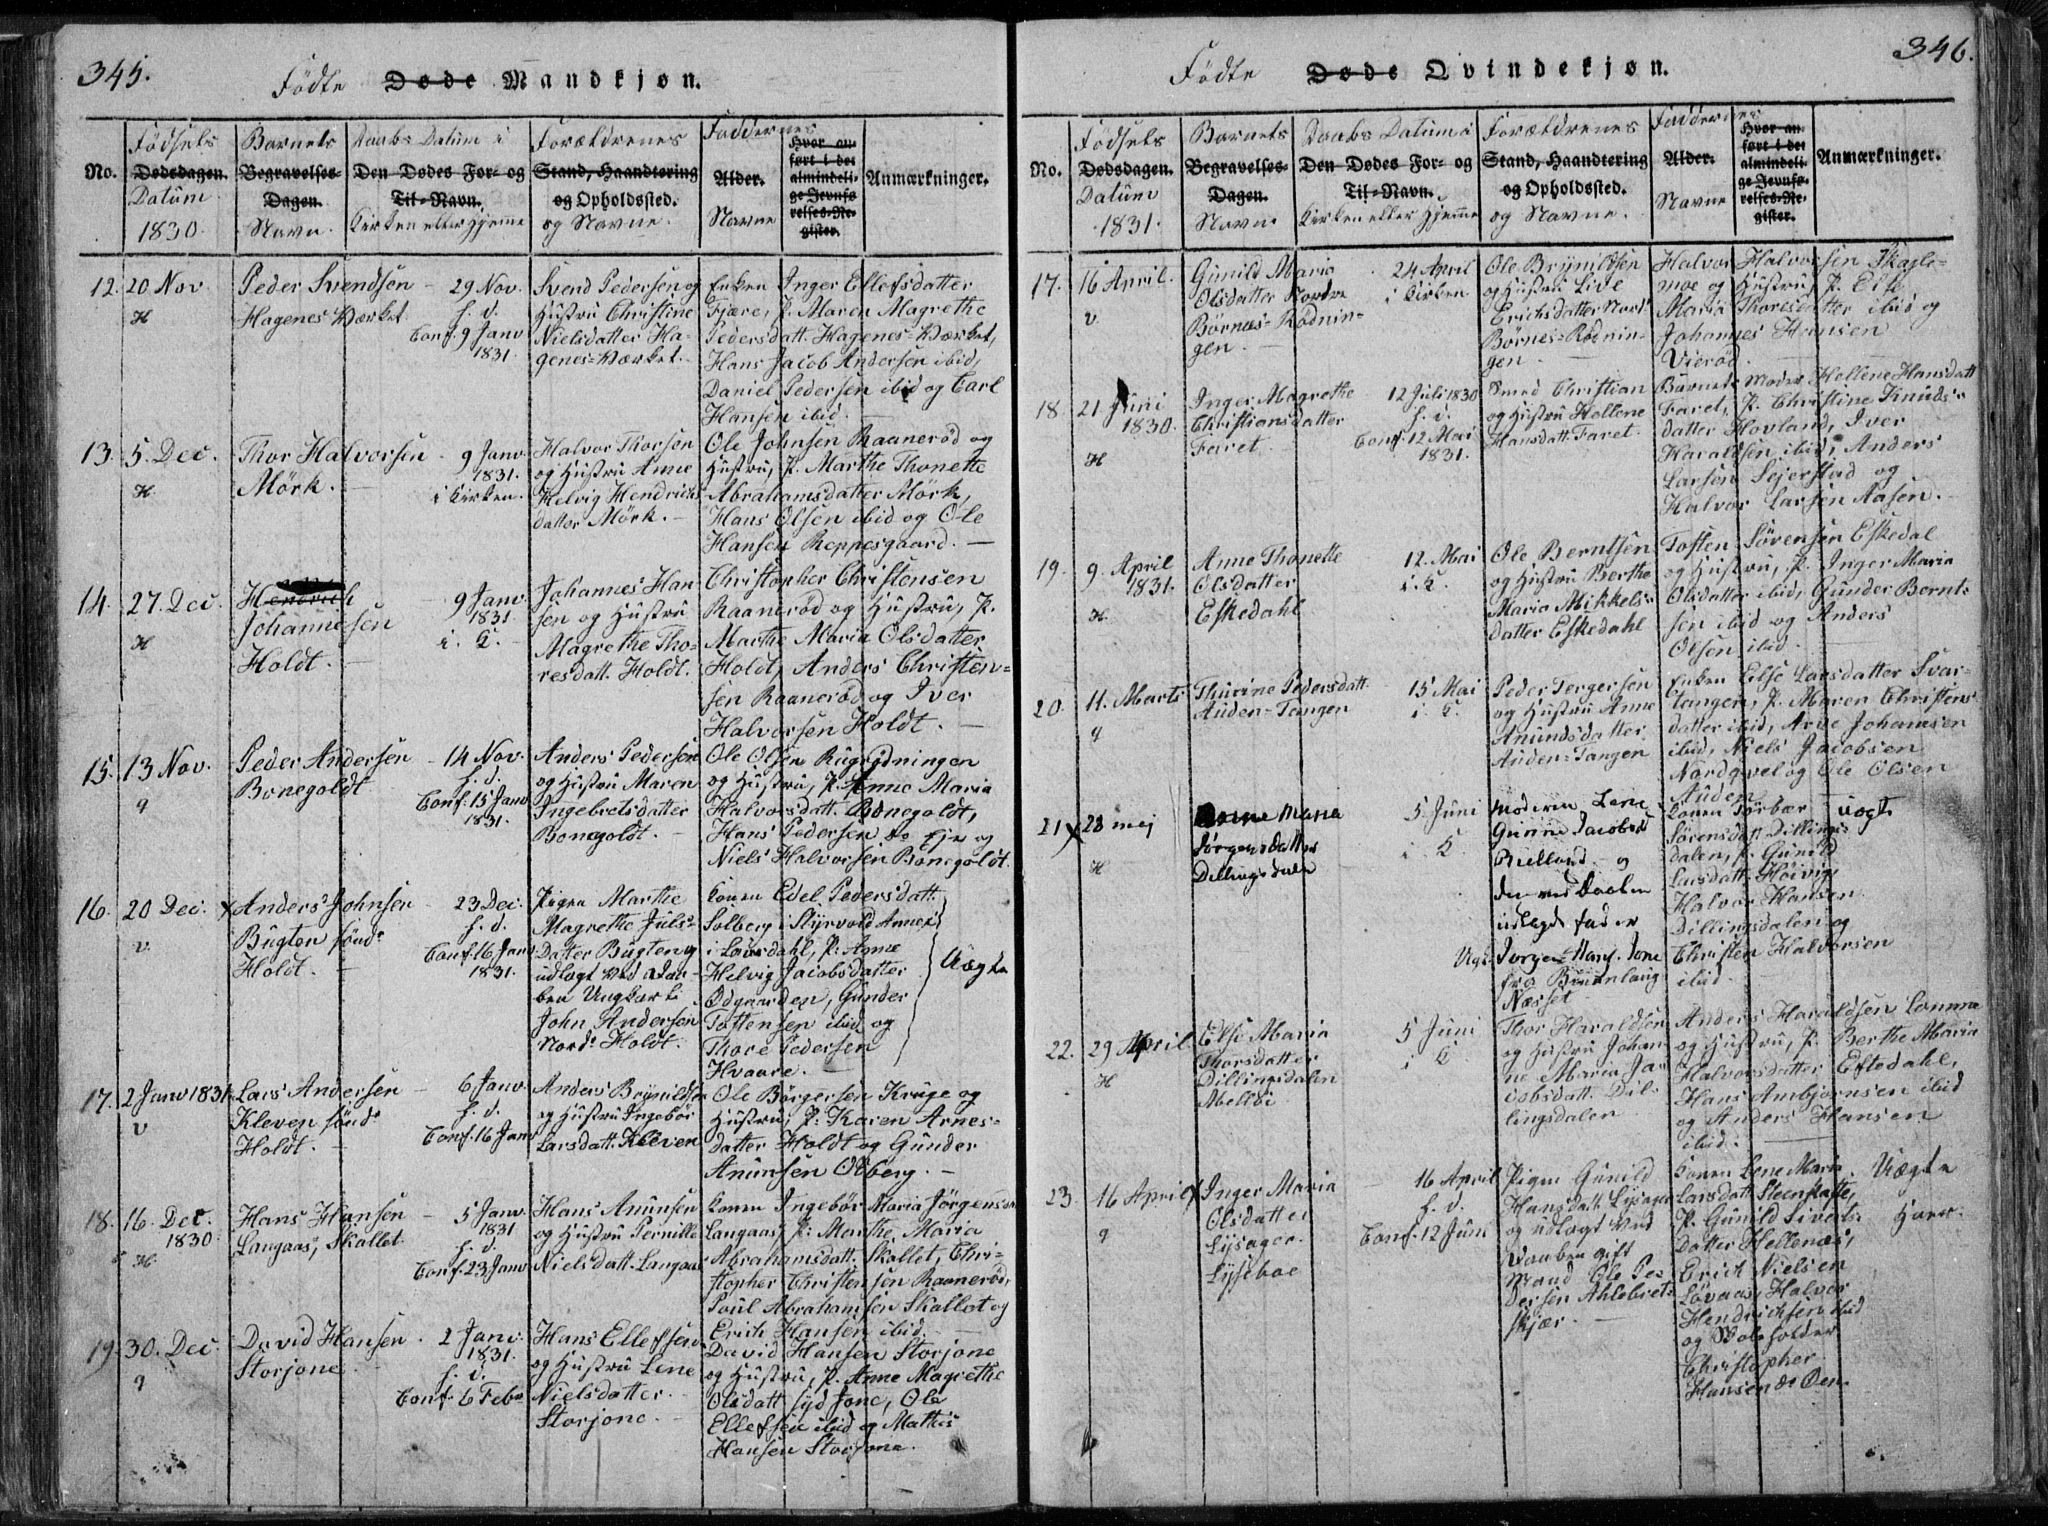 345.
Födte Døde Mandkjøn.
No.
Födsels
Dødsdagen.
Datum
1830.
Barnets
Begravelses-
Dagen.
Navn.
Daabs Datum i
Den Dødes For- og
Til-Navn.
Kirken eller Hjemme
Forældrenes
Stand, Haandtering
og Opholdssted.
og Navne.
Faddernes
Alder.
Navne
Hvor an-
ført i det
almindeli-
ge Jevnfø-
relses-Re-
gister.
Anmærkninger.
12. 20 Nov
H
Peder Svendsen
Hagenes Værket
29 Nov.
h. d.
Conf. 9 Janv
1831.
Svend Pedersen og
Hustru Christine
Nielsdatter Ha-
genes-Værket.
Enken Inger Ellefsdatter
Fjære, P. Maren Magrethe
Pedersdatt. Hagenes-Værket,
Hans Jacob Andersen ibid,
Daniel Pedersen ibid og Carl
Hansen ibid.
13. 5. Dec.
H.
Thor Halvorsen
Mörk.
9 Janv
1831.
i Kirken.
Halvor Thorsen
og Hustru Anne
Helvig Hendrichs
datter Mörk.
Ole Johnsen Raanerød og
Hustru, P. Marthe Thonette
Abrahamsdatter Mörk,
Hans Olsen ibid og Ole
Hansen Reppesgaard.
14. 27. Dec.
H
Hendrich
Johannesen
Holdt.
9 Janv
1831
i. K.
Johannes Han-
sen og Hustru
Magrethe Tho-
resdatt. Holdt.
Christopher Christensen
Raanerød og Hustru, P.
Marthe Maria Olsdatter
Holdt, Anders Christen-
sen Raanerød og Iver
Halvorsen Holdt.
15. 13 Nov.
q
Peder Andersen
Bonegoldt
14 Nov.
h. d.
Conf. 15 Janv
1831.
Anders Pedersen
og Hustru Maren
Ingebretsdatter
Bonegoldt.
Ole Olsen Rugrydningen
og Hustru, P. Anne Maria
Halvorsdatt. Bonegoldt,
Hans Pedersen do Ejer og
Niels Halvorsen Bonegoldt.
16. 20 Dec.
v.
x Anders Johnsen
Bugten sönd.
Holdt.
23 Dec.
h. d.
Conf. 16 Janv
1831.
Pigen Marthe
Magrethe Juls-
Datter Bugten og
udlagt ved Daa-
ben Ungkarl
John Andersen
Nord. Holdt.
Konen Edel Pedersdatt.
Solberg i Styrvold Annex
i Laursdahl, P. Anne
Helvig Jacobsdatter
Odgaarden, Gunder
Tostensen ibid og
Thore Pedersen
Hvaare.
Uægte
17. 2 Janv 1831.
v
Lars Andersen
Kleven sönd.
Holdt.
6 Janv.
h. d.
Conf. 16 Janv
Anders Brynildsen
og Hustru Ingebör
Larsdatt. Kleven
Ole Börgersen Kruge og
Hustru, P. Karen Arnes-
datter Holdt og Gunder
Anunsen Olberg.
18. 16. Dec.
1830
H.
Hans Hansen
Langaas, Skallet
5 Janv.
1831
h. d.
Conf. 23 Janv
Hans Anunsen
og Hustru Pernille
Nielsdatt. Langaas
Konen Ingebör Maria Jörgensen
Langaas, P. Marthe Maria
Abrahamsdatt. Skallet, Chri-
stopher Christensen Raanerød,
Poul Abrahamsen Skallet og
Erich Hansen ibid.
19. 30. Dec.
q
David Hansen
Storjone
2 Janv.
1831.
h. d.
Conf. 6 Febr
Hans Ellefsen
og Hustru Lene
Nielsdatter.
Storjone.
David Hansen Storjone
og Hustru, P. Anne Magrethe
Olsdatt. syd Jone, Ole
Ellefsen ibid og Mathis
Hansen Storjone.
346.
Födte Døde Qvindekjøn.
No.
Födsels
Dødsdagen.
Datum
1831.
Barnets
Begravelses-
Dagen.
Navn
Daabs Datum i
Den Dødes For- og
Til-Navn.
Kirken eller Hjemme
Forældrenes
Stand, Haandtering
og Opholdssted.
og Navne.
Faddernes
Alder.
Navne
Hvor an-
ført i det
almindeli-
ge Jevnfø-
relses-Re-
gister.
Anmærkninger.
17. 16 April.
v.
Gunild Maria
Olsdatter Nordre
Börnes-Rødnin-
gen.
24 April
i Kirken
Ole Brynildsen
og Hustru Live
Erichsdatter Nord.
Börnes-Rødnin-
gen
Halvor Halvorsen Skagle-
moe og Hustru, P. Else
Maria Thoresdatter ibid og
Johannes Hansen
Vierød.
18. 21 Juni
1830.
H
Inger Magrethe
Christiansdatter
Faret.
12 Juli 1830
h. d.
Conf. 12 Mai
1831.
Smed Christian
og Hustru Hellene
Hansdatt. Faret.
Barnets Moder Hellene Hansdatt
Faret, P. Christine Knuds-
datter Hovland, Iver
Haraldsen ibid, Anders
Larsen Sejerstad og
Halvor Larsen Aasen.
19. 9. April
1831.
H.
Anne Thonette
Olsdatter
Eskedahl
12. Mai
i. K.
Ole Berntsen
og Hustru Berthe
Maria Mikkels-
datter Eskedahl
Tosten Sövensen Eskedal
og Hustru, P. Inger Maria
Olsdatter ibid, Gunder Bernt-
sen ibid og Anders
Olsen ibid.
20. 11. Marts
q
Thurine Pedersdatt.
Auden-Tangen
15 Mai
i. K.
Peder Tergersen
og Hustru Anne
Anundsdatter
Auden-Tangen
Enken Else Larsdatter Svar-
tangen, P. Maren Christens
datter ibid, Arve Johansen
ibid, Niels Jacobsen
Nordqvel og Ole Olsen
Auden
21 x 28 mej
H
Anne Maria
Jørgensdatter
Dillingsdalen
5 Juni
i. K.
Moderen Lene
Gurine Jacobsd
Rielland og
den ved Daaben
udlagde fader
Ugk. Jørgen Hans. Jone
fra Brunlaug
Næsset
Konen Torbær
Sörensdatt. Dillings-
dalen, P. Gunild
Larsdatt. Höivig,
Halvor Hansen
Dillingsdalen og
Christen Halvorsen
ibid.
uægte
22. 29 April
H
Else Maria
Thorsdatter
Dillingsdalen
Mellbÿ
5 Juni
i. K.
Thor Haraldsen
og Hustru Johan-
ne Maria Ja-
cobsdatt. Dil-
lingsdalen
Anders Haraldsen Lomma
og Hustru, P. Berthe Maria
Halvorsdatter Eftedahl,
Hans Ambjörnsen ibid
og Anders Hansen
ibid.
23. 16 April x
q
Inger Maria
Olsdatter
Lysager.
Lyseboe
16 April
h. d.
Conf. 12 Juni
Pigen Gunild
Hansdatt. Lysager
og udlagt ved
Daaben gift
Mand Ole Pe-
dersen Ahlebret-
skjær.
Konen Lene Maria
Larsdatt. Steenstafte,
P. Gunild Siverts-
Datter Hellenæs,
Erich Nielsen
Lövaas, Halvor
Hendrichsen ibid
og
Christopher
Hansen de Oen.
Uægte
Hoer.